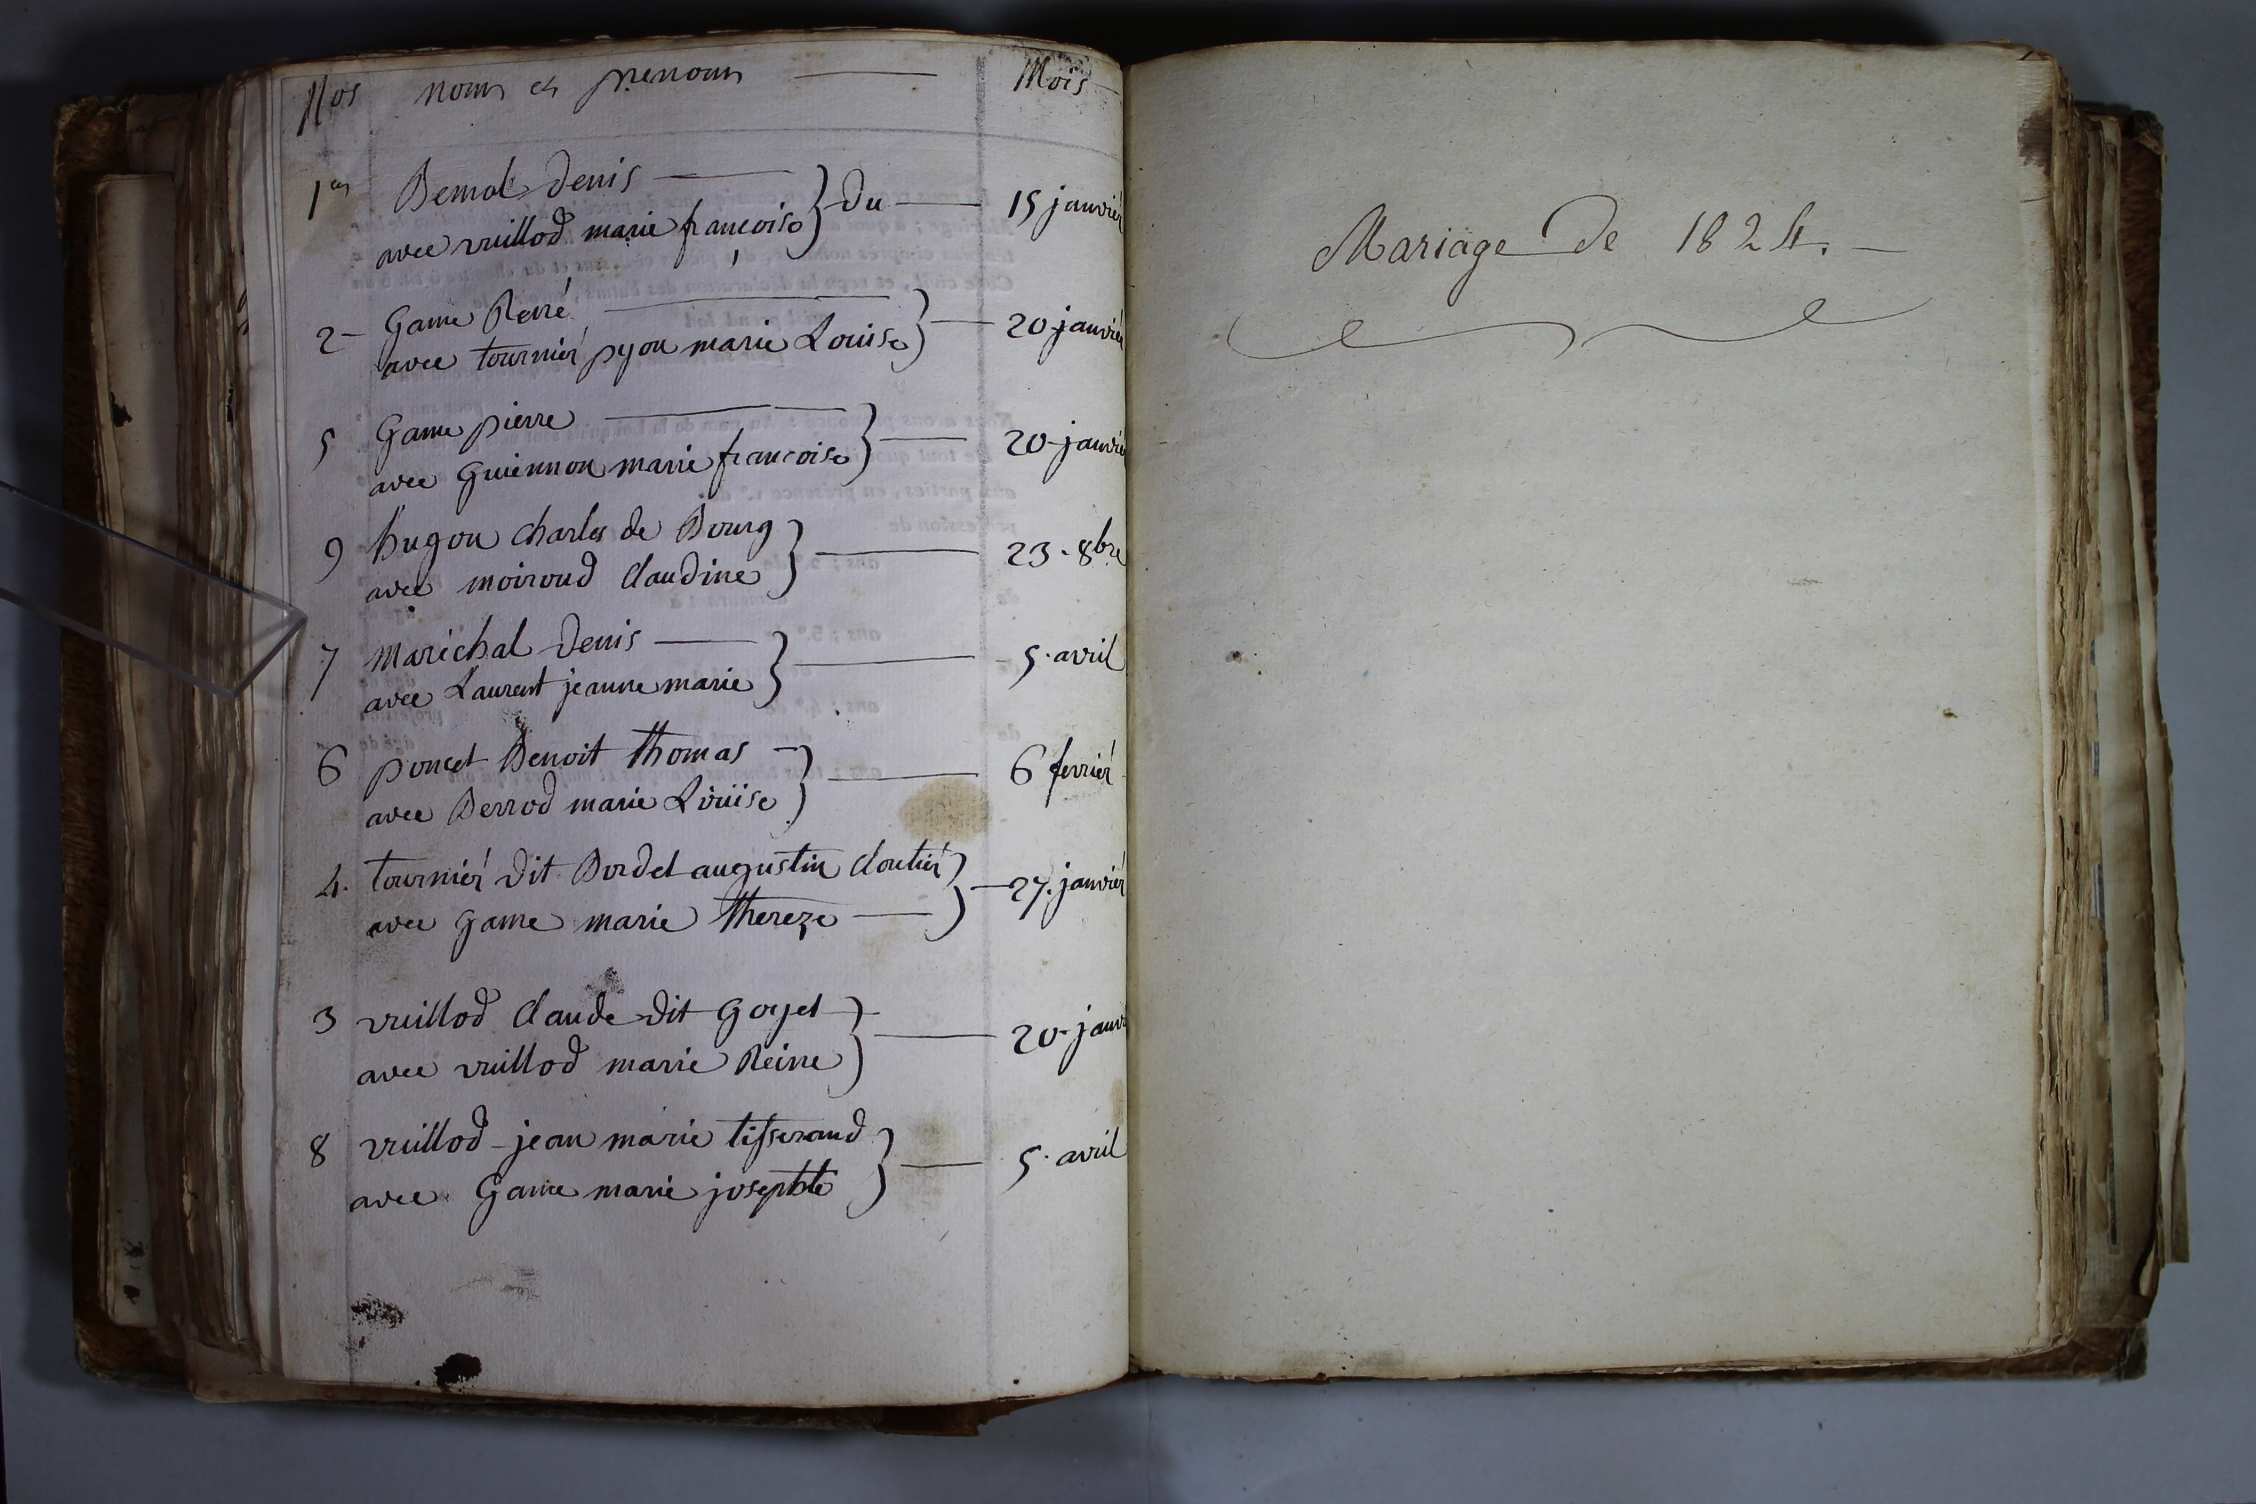 Nos noms et prenoms — Mois —
1er Bemol Denis —
avec vuillod marie françoise } Du — 15 janvier
2 – Game René —
avec tournier pyon marie Louise } — 20 janvier
5 Game pierre —
avec Guiennon marie françoise } — 20 janvier
9 hugon Charles de Bourg
avec moiroud Claudine } — 23. 8bre
7 Maréchal Denis —
avec Laurent jeanne marie } — 5. avril
6 poncet Benoit thomas —
avec Berrod marie Louise } — 6 fevrier
4. tournier dit Bordet augustin Cloutier
avec game marie thereze — } — 27. janvier
3 vuillod Claude dit Goyet —
avec vuillod marie Reine } — 20 janv
8 vuillod jean marie tisserand
avec Game marie josephte } — 5. avril
Mariage De 1824. —